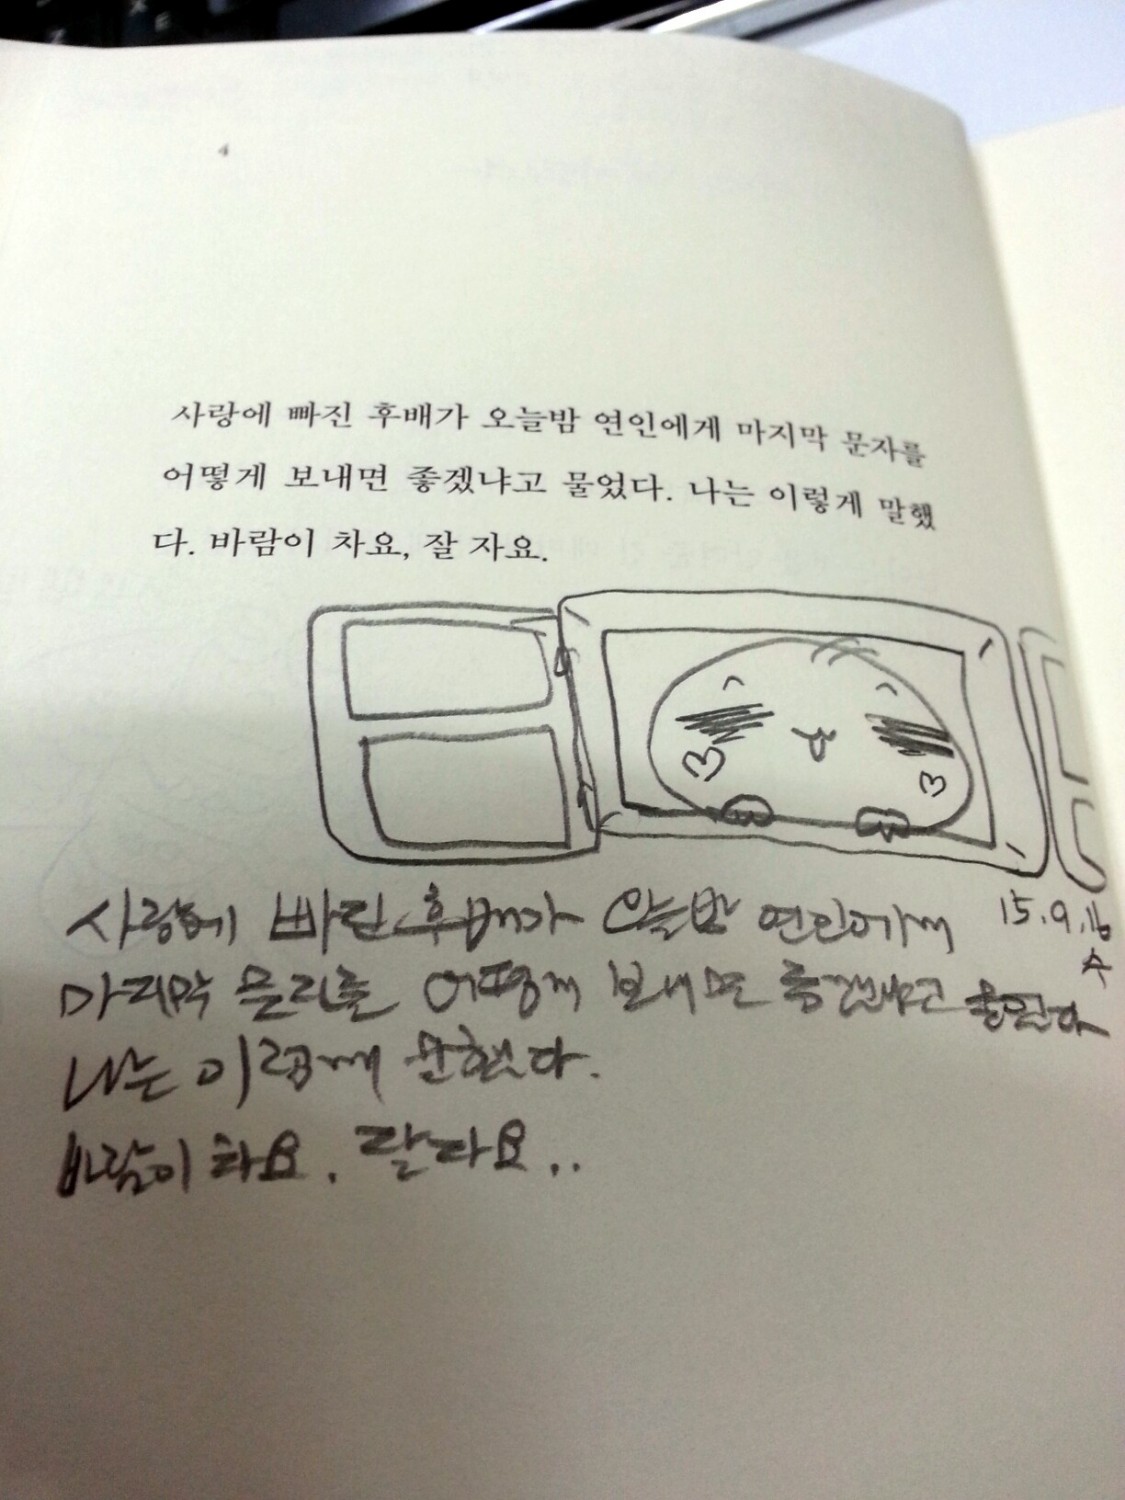 4
사랑에 빠진 후배가 오늘밤 연인에게 마지막 문자를
어떻게 보내면 좋겠냐고 물었다. 나는 이렇게 말했
다. 바람이 차요, 잘 자요.
15.9.16
수
사랑에 빠진 후배가 오늘밤 연인에게
마지막 문자를 어떻게 보내면 좋겠냐고 물었다
나는 이렇게 말했다.
바람이 차요. 잘자요..